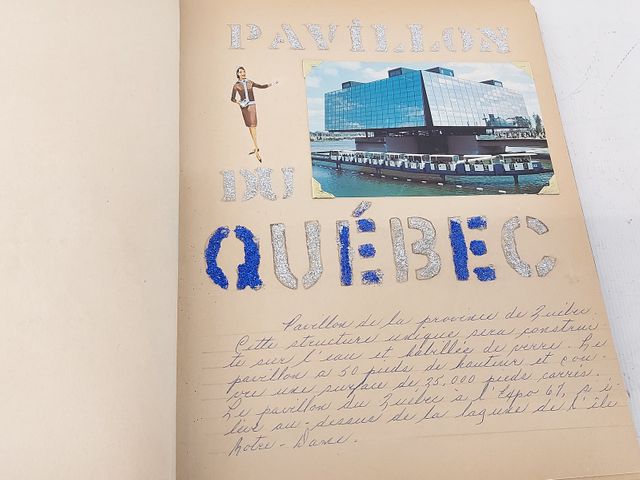 PAVILLON
DU
QUÉBEC
Pavillon de la province de Québec.
Cette structure unique sera construi-
te sur l'eau et habillée de verre. Le
pavillon a 50 pieds de hauteur et cou-
vre une surface de 25,000 pieds carrés.
Le pavillon du Québec à l'Expo 67, s'é-
lève au-dessus de la lagune de l'île
Notre-Dame.